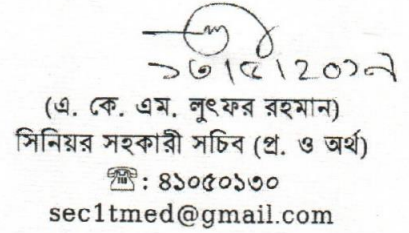 ১৬।৫।২০১৭
(এ. কে. এম. লুৎফর রহমান)
সিনিয়র সহকারী সচিব (প্র. ও অর্থ)
☎: ৪১০৫০১৩০
sec1tmed@gmail.com